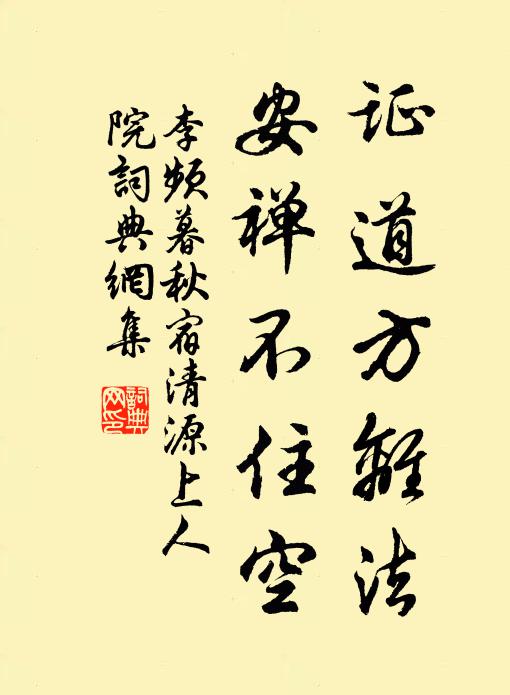 证道方離法
安禅不住空
李频暮秋宿清源上人
院詞典網集
詞典
网印